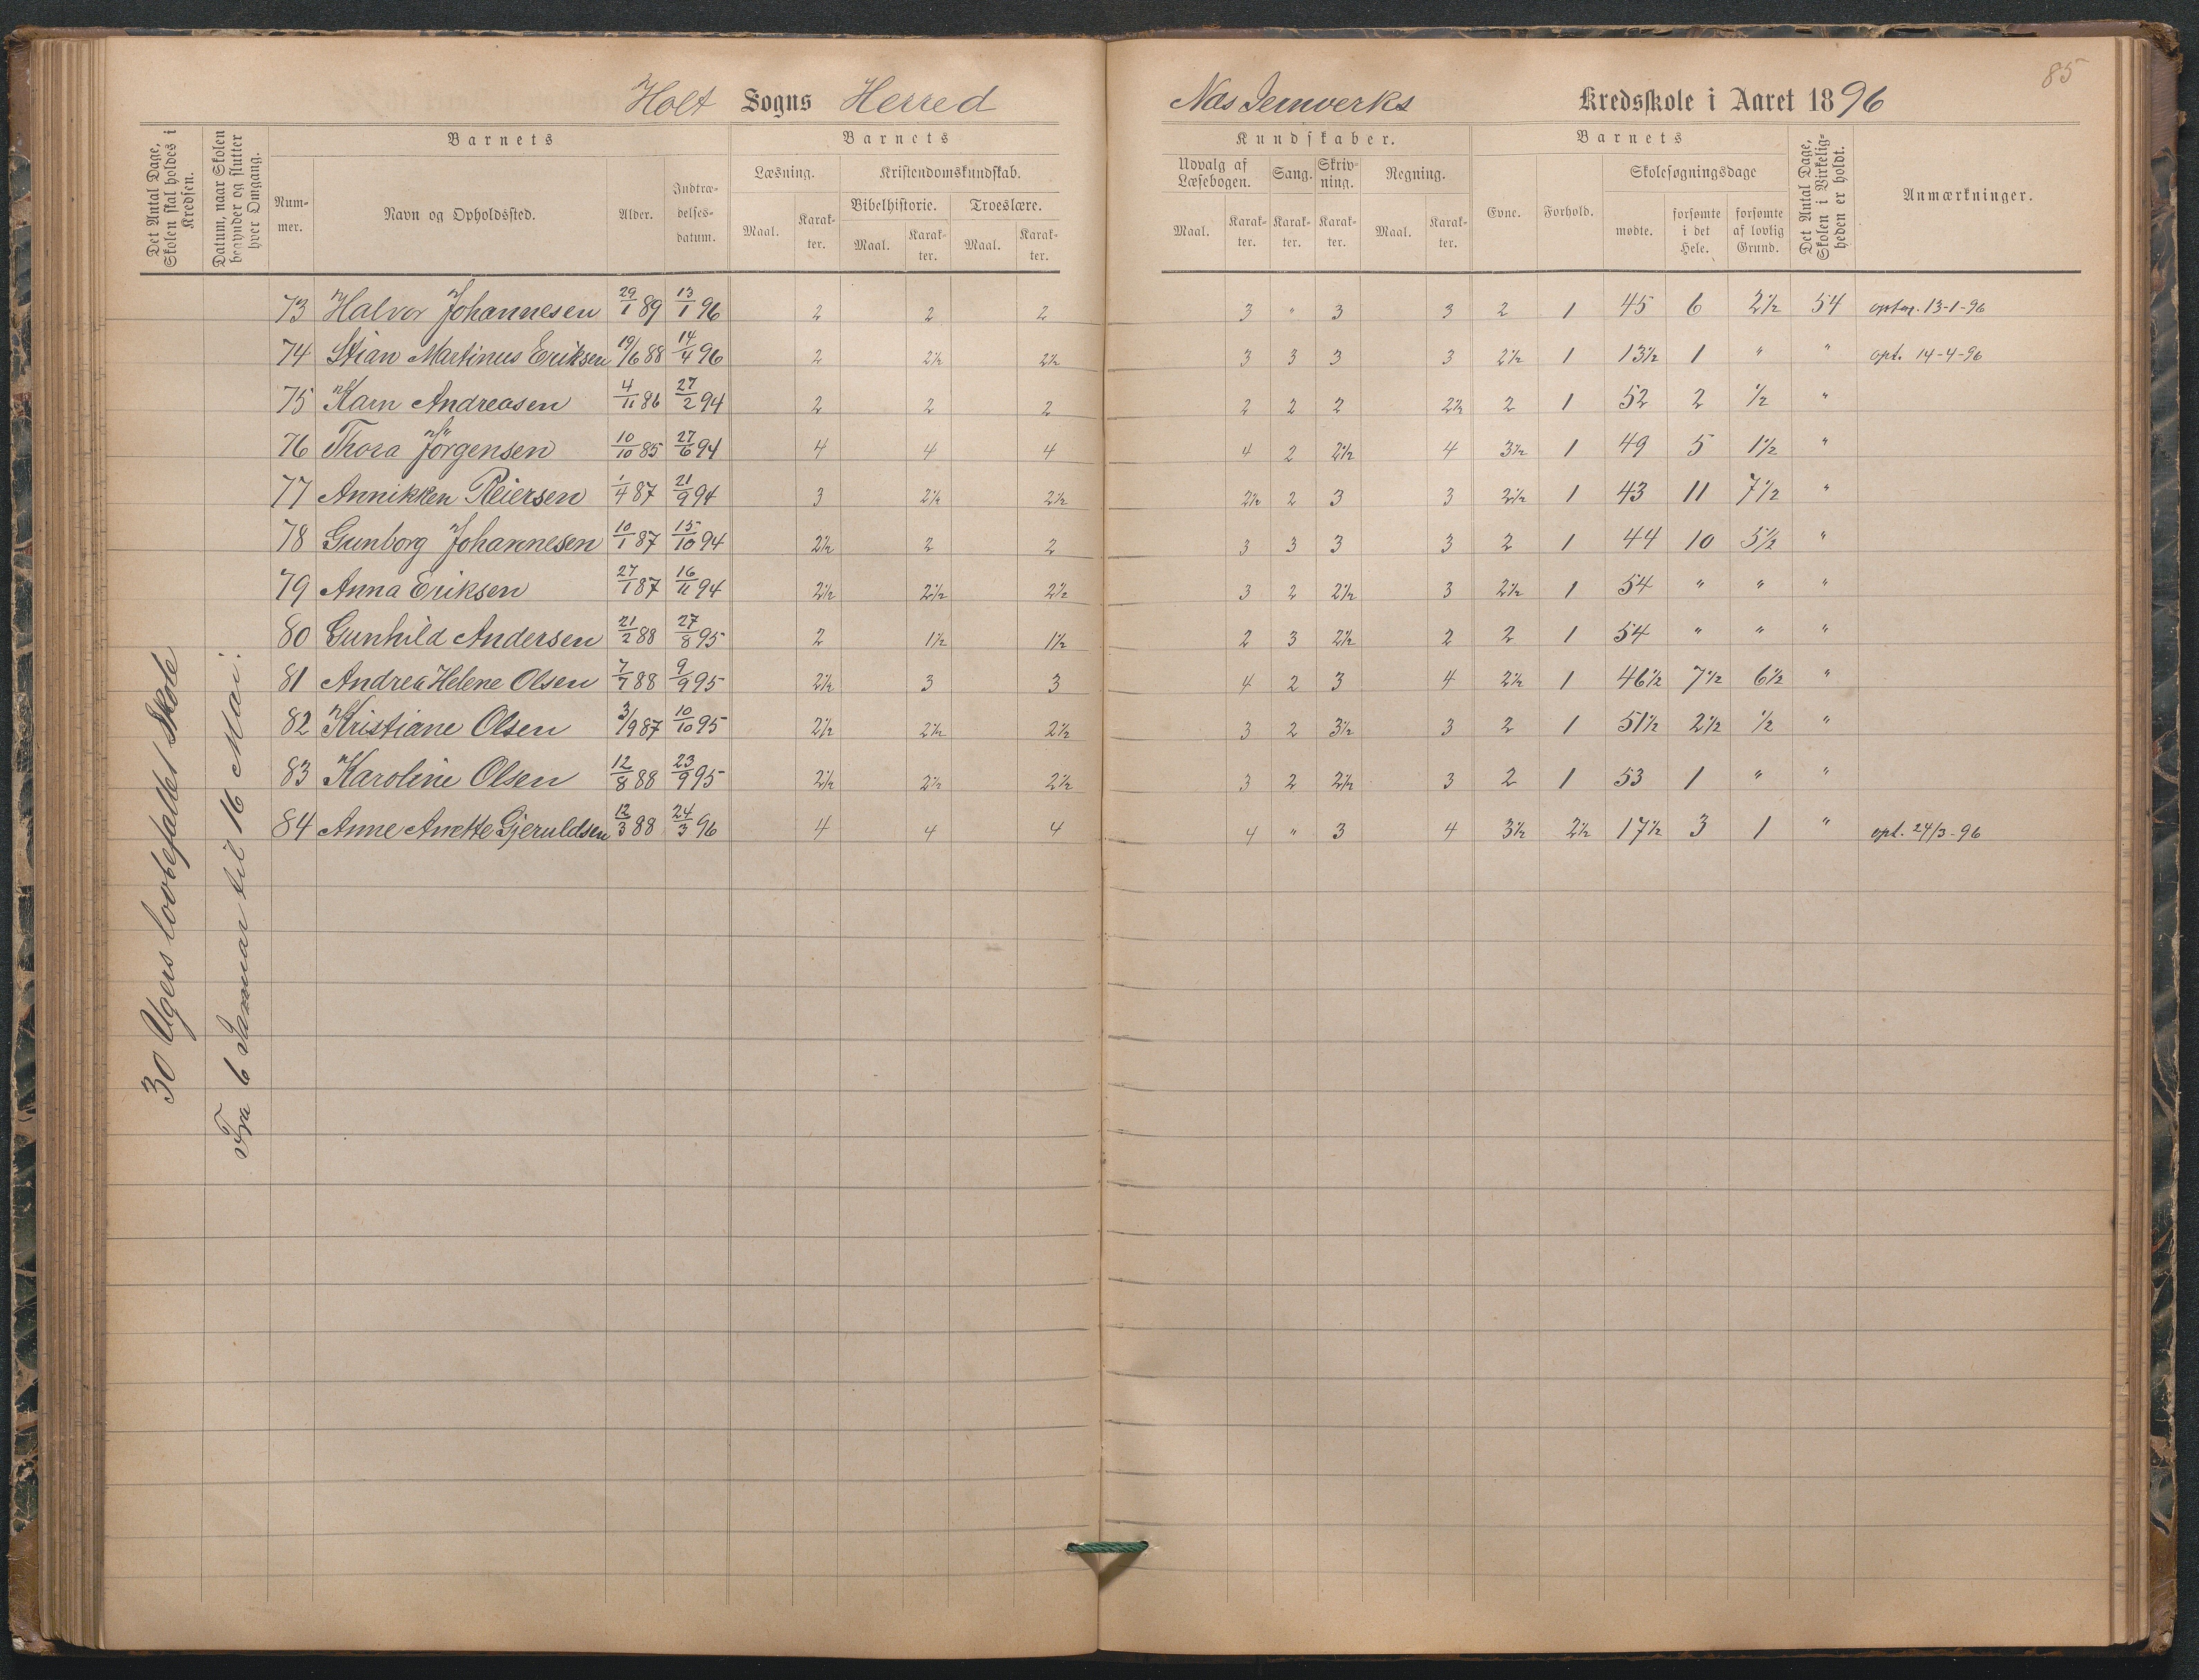 85
Holt Sogns Herred Næs Jernverks Kredsskole i Aaret 1896
Det Antal Dage, Skolen skal holdes i Kredsen.
Datum, naar Skolen begynder og slutter hver Omgang.
Barnets Barnets Kundskaber. Barnets
Det Antal Dage, Skolen i Virkeligheden er holdt.
Anmærkninger.
Nummer. Navn og Opholdssted. Alder. Indtrædelsesdatum.
Læsning. Kristendomskundskab. Udvalg af Læsebogen. Sang. Skrivning. Regning. Evne. Forhold. Skolesøgningsdage
Bibelhistorie. Troeslære.
Maal. Karakter. Maal. Karakter. Maal. Karakter. Maal. Karakter. Karakter. Karakter. Maal. Karakter. mødte. forsømte i det Hele. forsømte af lovlig Grund.
73 Halvor Johannesen 29/1 89 13/1 96 2 2 2 3 " 3 3 2 1 45 6 2½ 54 optag. 13-1-96
74 Stian Martinus Eriksen 19/6 88 14/4 96 2 2½ 2½ 3 3 3 3 2½ 1 13½ 1 " " opt. 14-4-96
75 Karn Andreasen 4/11 86 27/2 94 2 2 2 2 2 2 2½ 2 1 52 2 ½ "
76 Thora Jörgensen 10/10 85 27/6 94 4 4 4 4 2 2½ 4 3½ 1 49 5 1½ "
77 Annikken Reiersen 1/4 87 21/9 94 3 2½ 2½ 2½ 2 3 3 2½ 1 43 11 7½ "
78 Gunborg Johannesen 10/1 87 15/10 94 2½ 2 2 3 3 3 3 2 1 44 10 5½ "
79 Anna Eriksen 27/1 87 16/11 94 2½ 2½ 2½ 3 2 2½ 3 2½ 1 54 " " "
80 Gunhild Andersen 21/2 88 27/8 95 2 1½ 1½ 2 3 2½ 2 2 1 54 " " "
81 Andrea Helene Olsen 7/7 88 9/9 95 2½ 3 3 4 2 3 4 2½ 1 46½ 7½ 6½ "
82 Kristiane Olsen 3/9 87 10/10 95 2½ 2½ 2½ 3 2 3½ 3 2 1 51½ 2½ ½ "
83 Karoline Olsen 12/8 88 23/9 95 2½ 2½ 2½ 3 2 2½ 3 2 1 53 1 " "
84 Anne Anette Gjeruldsen 12/3 88 24/3 96 4 4 4 4 " 3 4 3½ 2½ 17½ 3 1 " opt. 24/3-96
30 Ugers lovbefalet Skole
Fra 6 Januar til 16 Mai.